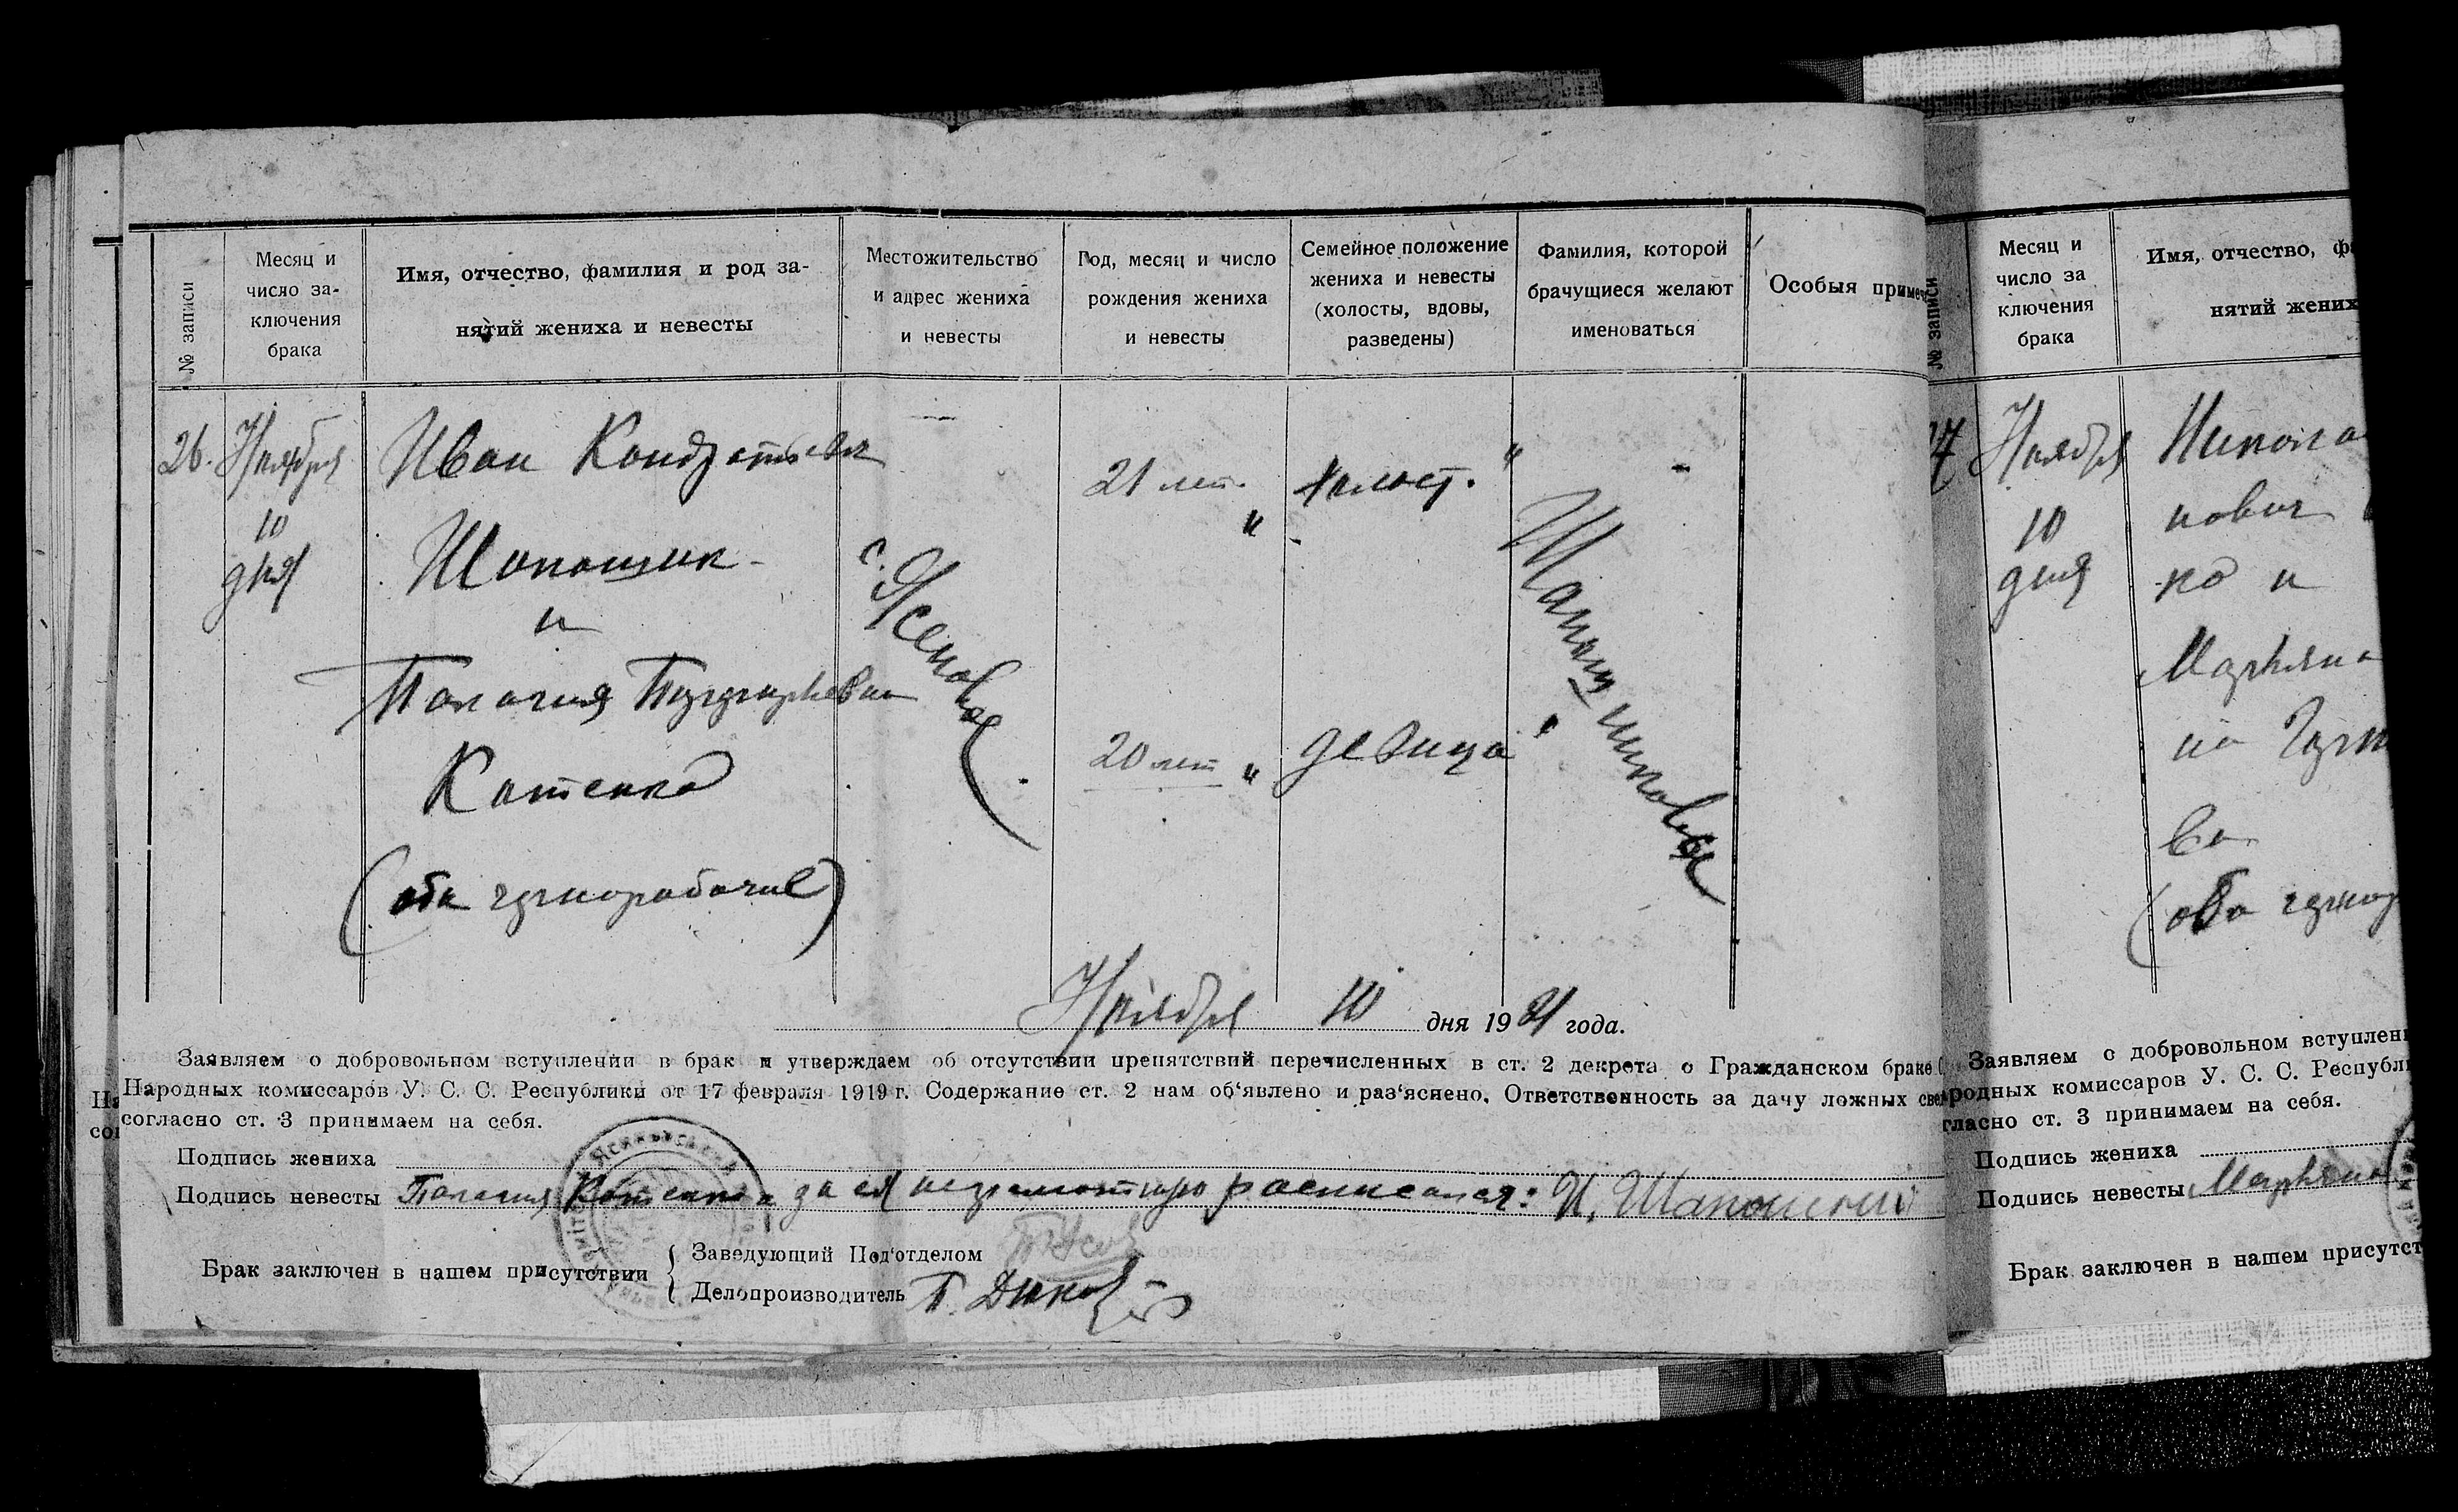 № записи
Месяц и
число за-
ключения
брака
Имя, отчество, фамилия и род за-
нятий жениха и невесты
Местожительство
и адрес жениха
и невесты
Год, месяц и число
рождения жениха
и невесты
Семейное положение
жениха и невесты
(холосты, вдовы,
разведены)
Фамилия, которой
брачущиеся желают
именоваться
Особыя примеч
26.
Ноября
10
дня
Иван Кондратьевич
и
Котенко
(оба чернорабочие)
с. Ясеновое
21 лет.
холост.
20 лет
девица
Ноября 10 дня 1921 года.
Заявляем о добровольном вступлении в брак и утверждаем об отсутствии препятствий перечисленных в ст. 2 декрета о Гражданском браке
Народных комиссаров У. С. С. Республики от 17 февраля 1919 г. Содержание ст. 2 нам об‘явлено и раз‘яснено. Ответственность за дачу ложных све
согласно ст. 3 принимаем на себя.
Подпись жениха
Подпись невесты Котенко а за ея неграмотную росписался: И.
Брак заключен в нашем присутствии
Заведующий Под‘отделом
Делопроизводитель П.
№ записи
Месяц и
число за
ключения
брака
Имя, отчество, фа
нятий жених
27
Ноября
10
дня
нович
ко и
ва
(оба чернор
Заявляем о добровольном вступлен
родных комиссаров У. С. С. Республ
гласно ст. 3 принимаем на себя.
Подпись жениха
Подпись невесты
Брак заключен в нашем присутст